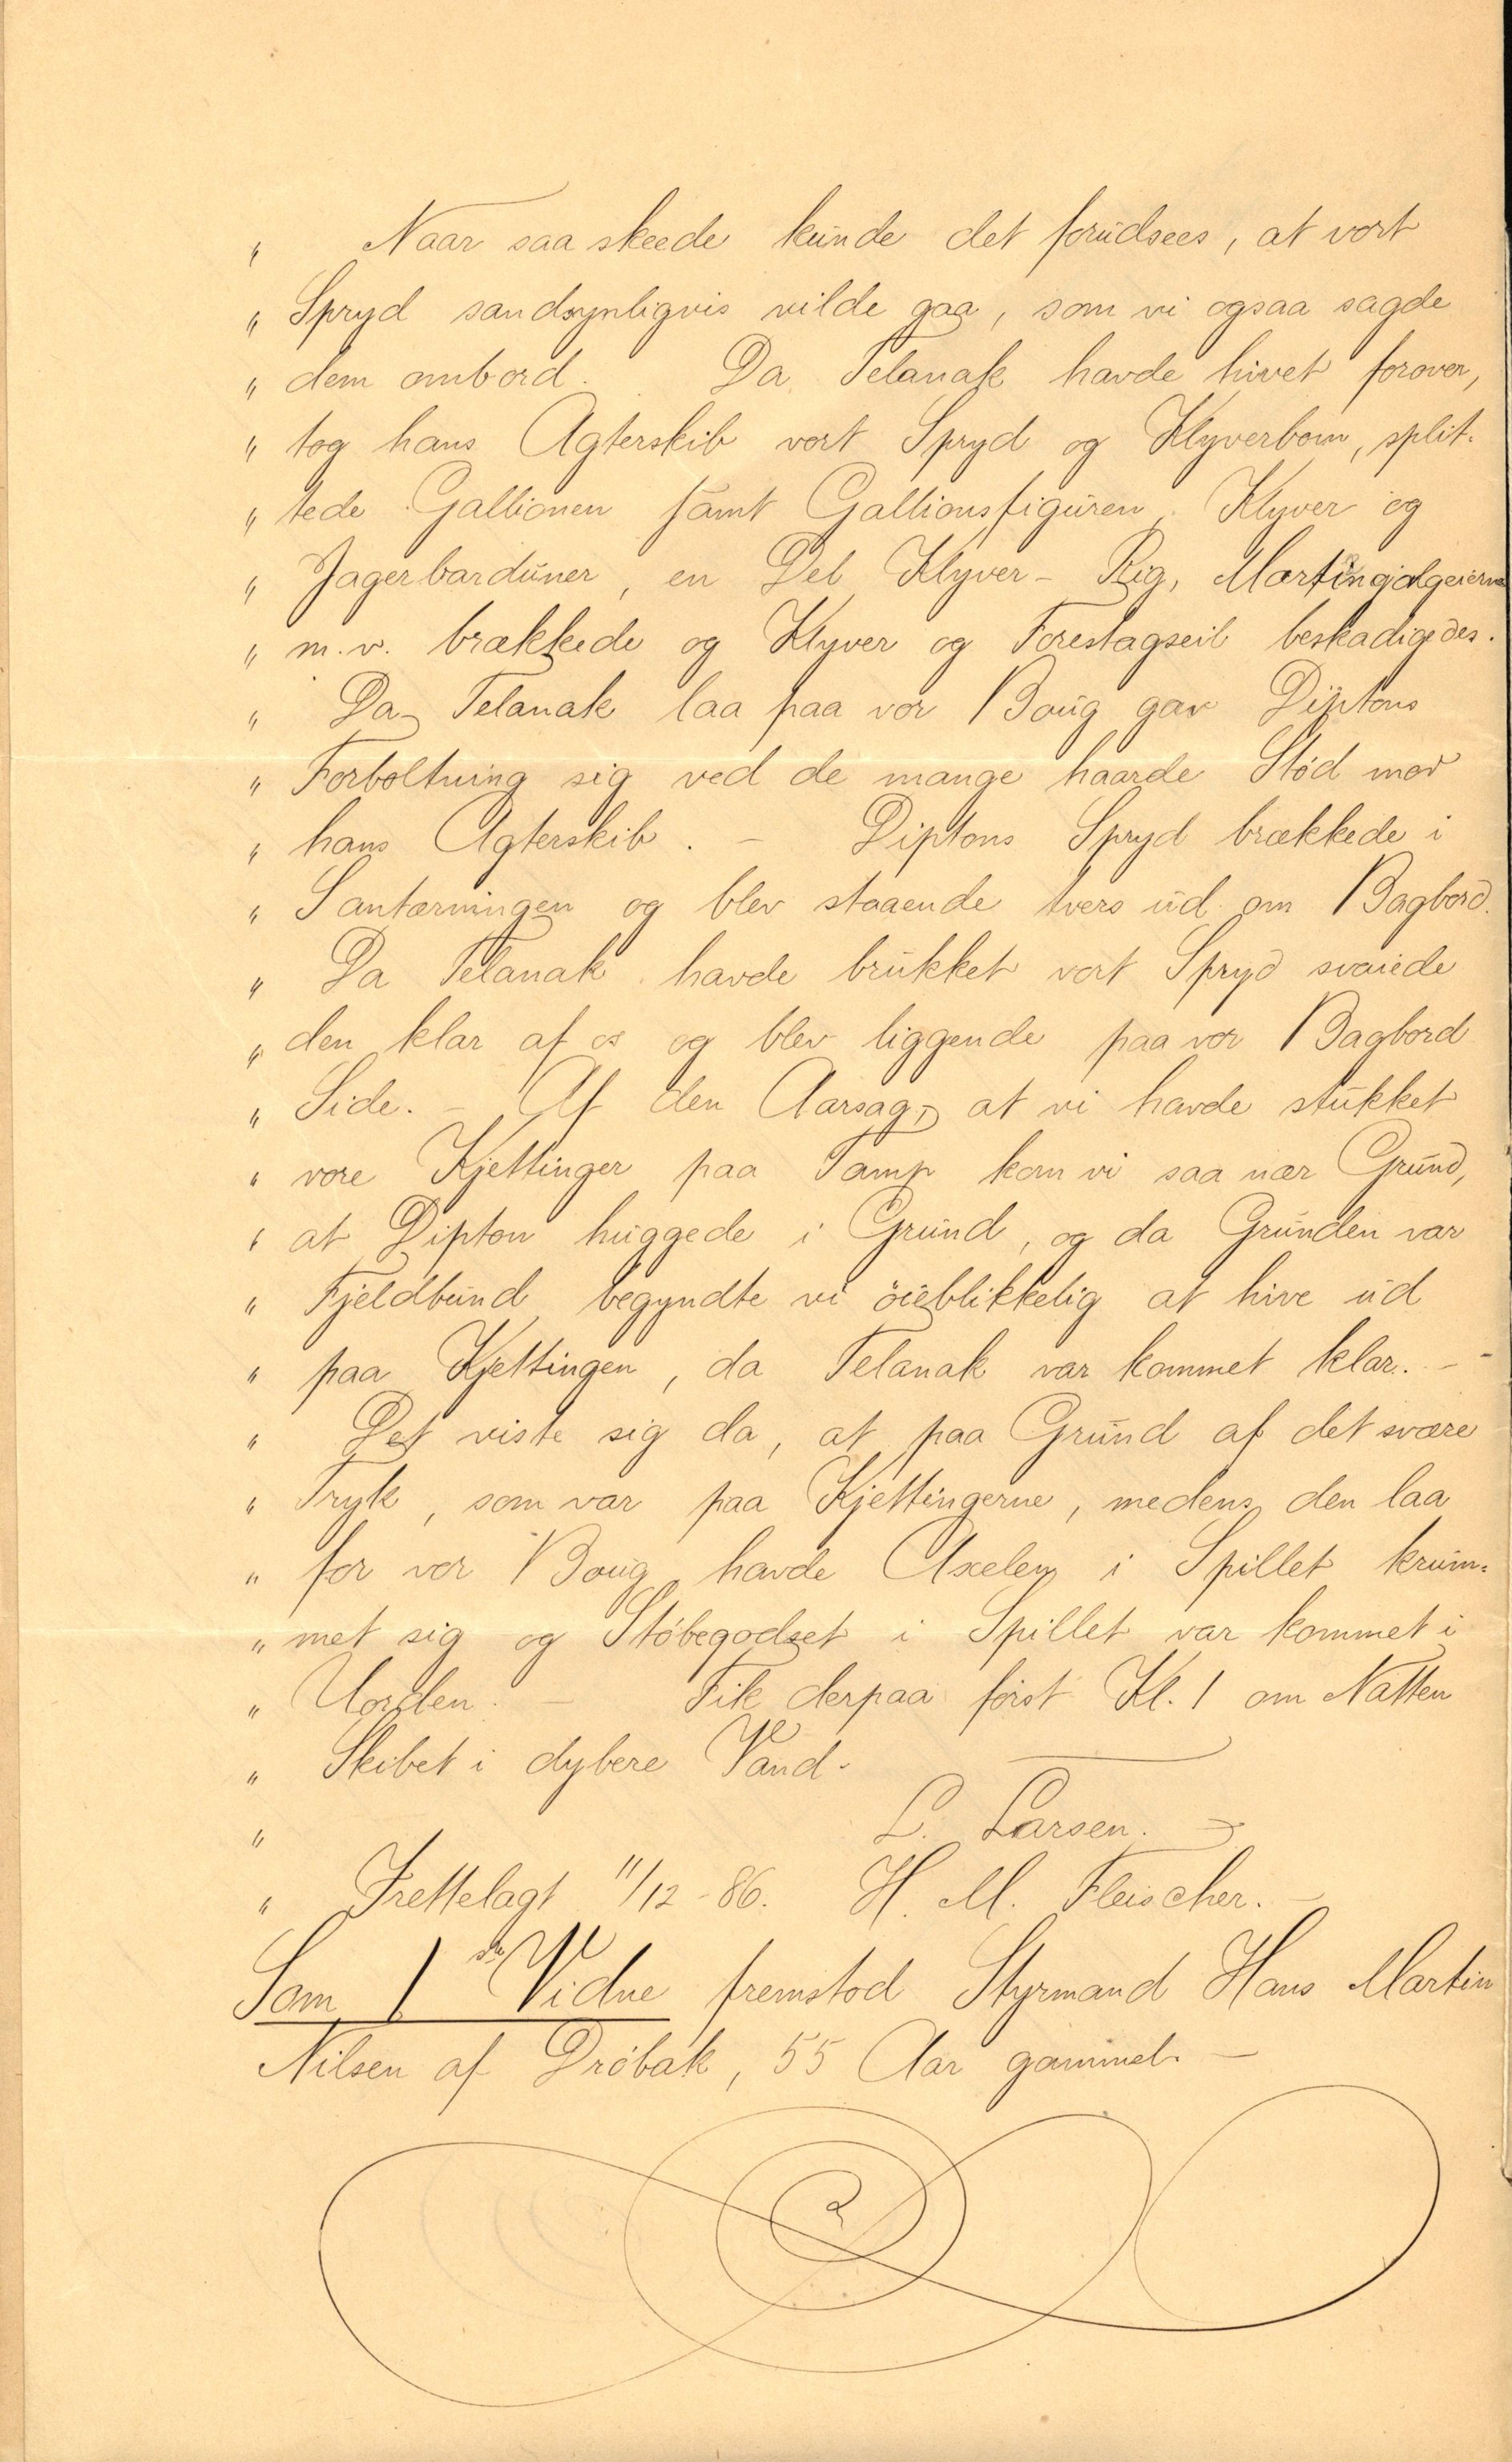 „ Naar saa skeede kunde det forudsees, at vort
„ Spryd sandsynligvis vilde gaa, som vi ogsaa sagde
„ dem ombord. Da Telanak havde hivet forover,
„ tog hans Agterskib vort Spryd og Klyverbom, split-
„ tede Gallionen samt Gallionsfiguren, Klyver og
„ Jagerbarduner, en Del Klyver-Rig, Martingalgeierne
„ m.v. brækkede og Klyver og Forestagseil beskadigedes.
„ Da Telanak laa paa vor Boug gav Diptons
„ Forboltning sig ved de mange haarde Stød mod
„ hans Agterskib. – Diptons Spryd brækkede i
„ Santørningen og blev staaende tvers ud om Bagbord.
„ Da Telanak havde brukket vort Spryd svaiede
„ den klar af os og blev liggende paa vor Bagbord
„ Side. – Af den Aarsag, at vi havde stukket
„ vore Kjettinger paa Tamp kom vi saa nær Grund,
„ at Dipton huggede i Grund, og da Grunden var
„ Fjeldbund begyndte vi öieblikkelig at hive ud
„ paa Kjettingen, da Telanak var kommet klar. –
„ Det viste sig da, at paa Grund af det svære
„ Tryk, som var paa Kjettingerne, medens den laa
„ for vor Boug havde Axelen i Spillet krum-
„ met sig og Støbegodset i Spillet var kommet i
„ Uorden. – Fik derpaa først Kl. 1 om Natten
„ Skibet i dybere Vand. –
„ L. Larsen.
„ Frettelagt 11/12-86. H. M. Fleischer. –
Som 1ste Vidne fremstod Styrmand Hans Martin
Nilsen af Drøbak, 55 Aar gammel. –